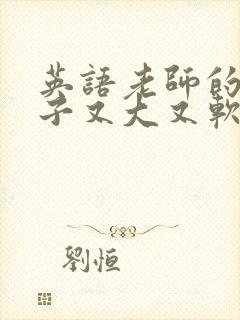 英語老師的
子又大又軟
劉恒